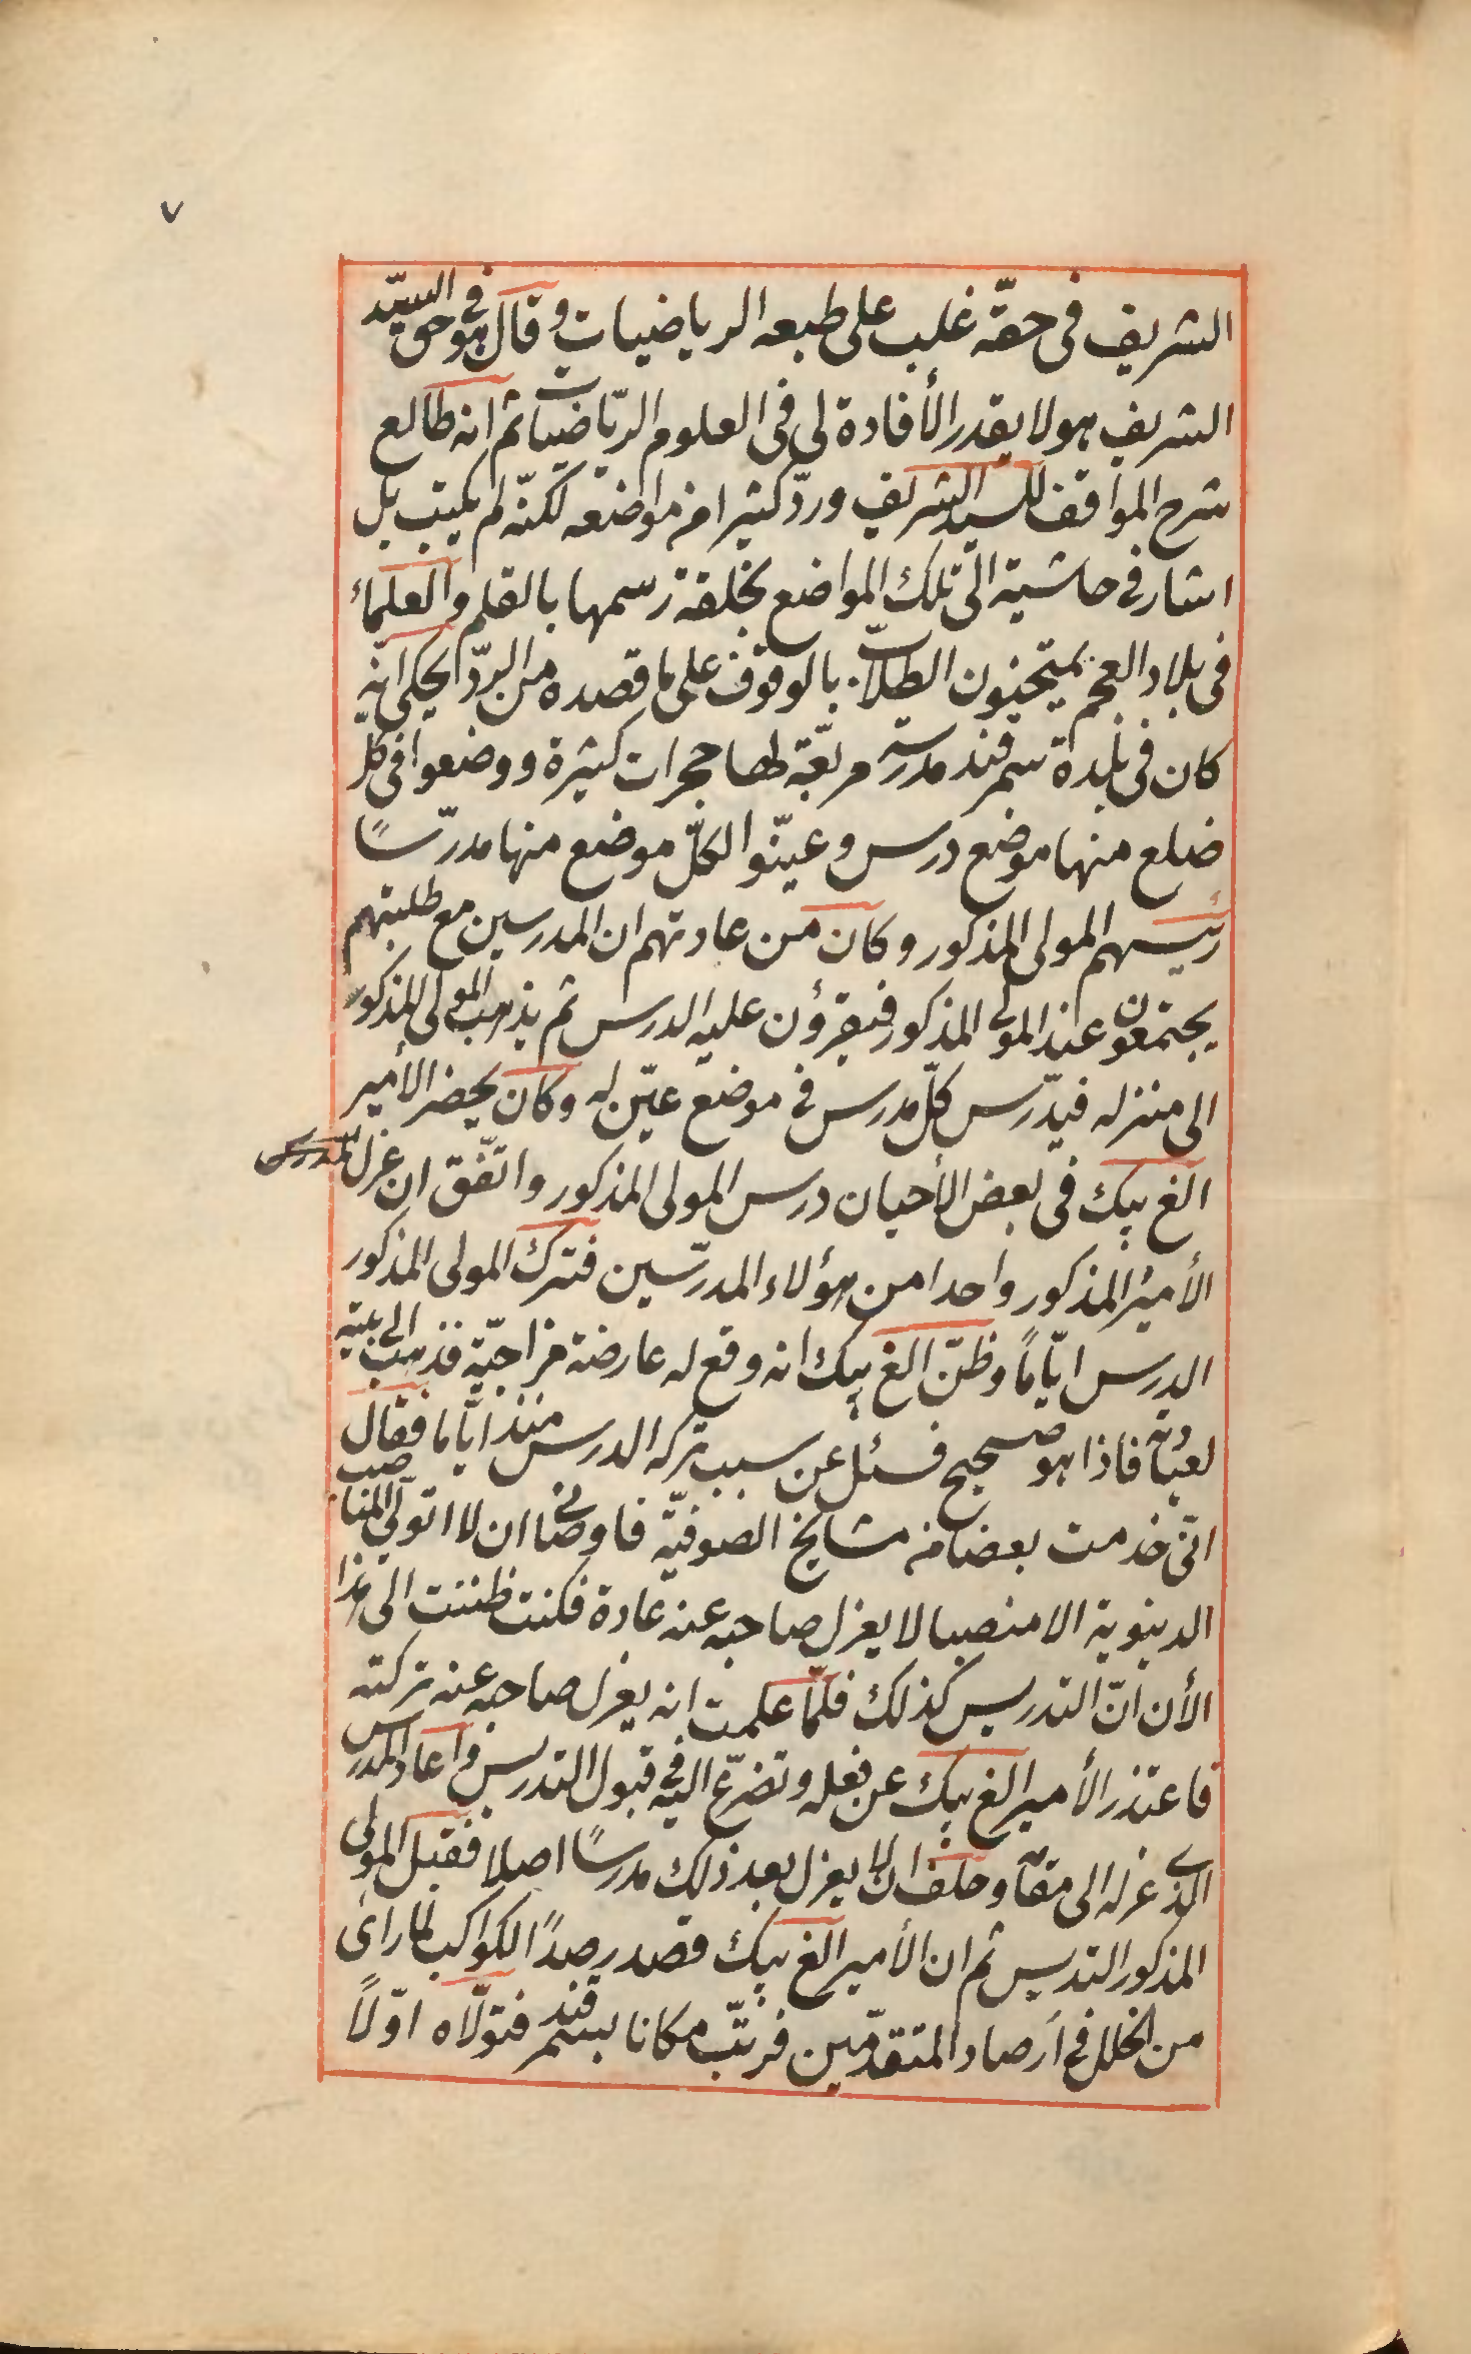 ٧
الشريف فى حقّه غلب على طبعه الرياضيات وقال هو فى حق السيّد
الشريف هو لا يقدر الأفادة لى فى العلوم الريّاضيات ثم انه طالع
شرح المواقف للسيد الشريف وردّ كثيرا من مواضعه لكنّه لم يكتب بل
اشار فى حاشيته الى تلك المواضع بحلقة رسمها بالقلم والعلماء
فى بلاد العجم يمتحنون الطلاّب بالوقوف على ما قصده من الردّ يحكى انّه
كان فى بلدة سمرقند مدرسة مربّعة لها حجرات كثيرة ووضعوا فى كلّ
ضلع منها موضع درس وعيّنوا لكلّ موضع منها مدرّسًا
رئيسهم المولى المذكور وكان من عادتهم ان المدرسين مع طلبتهم
يجتمعون عند المولى المذكور فيقرؤن عليه الدرس ثم يذهب المولى المذكور
الى منزله فيدّرس كلّ مدرس فى موضع عيّن له وكان يحضر الأمير
الغ بيك فى بعض الأحيان درس المولى المذكور واتّفق ان عزل
الأميرُ المذكور واحدا من هؤلاء المدرّسين فترك المولى المذكور
الدرس ايّامًا وظنّ الغ بيك انه وقع له عارضة مزاجيّة فذهب الى بيته
لعيادته فاذا هو صحيح فسئل عن سبب تركه الدرس منذ ايّاما فقال
انّى خدمت بعضا من مشايخ الصوفيّة فاوصانى ان لا اتولى المناصب
الدينوية الا منصبا لا يعزل صاحبه عنه عادة فكنت ظننت الى هذا
الأن انّ التدريس كذلك فلمّا علمت انه يعزل صاحبه عنه تركته
فاعتذر الأمير الغ بيك عن فعله وتضرّع اليه فى قبول التدريس واعاد المدرس
الذى عزله الى مقامه وحلف ان لا يعزل بعد ذلك مدرسًا اصلا فقبل المولى
المذكور التدريس ثم ان الأمير الغ بيك قصد رصدًا الكواكب لما راى
من الخلل فى اَرصاد المتقدّمين فرتّب مكانا بسمرقند فتولّاه اوّلاً